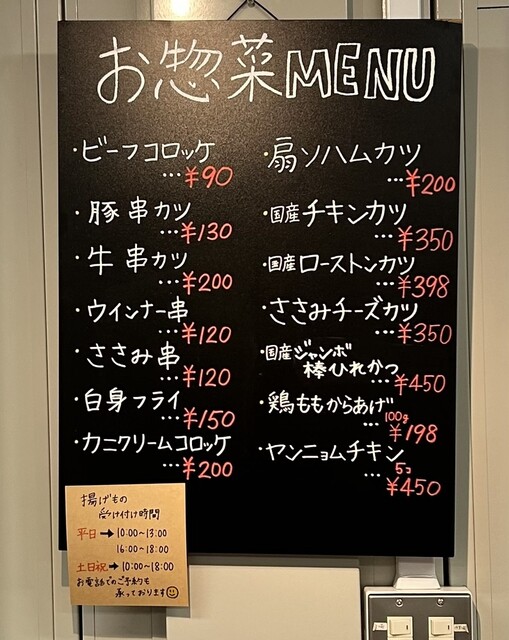 お惣菜MENU
・ビーフコロッケ
…¥90
・豚串カツ
…¥130
・牛串カツ
…¥200
・ウインナー串
…¥120
・ささみ串
…¥120
・白身フライ
…¥150
・カニクリームコロッケ
…¥200
・扇ソハムカツ
…¥200
・国産チキンカツ
…¥350
・国産ローストンカツ
…¥398
・ささみチーズカツ
…¥350
・国産ジャンボ
棒ひれかつ
…¥450
・鶏ももからあげ
…100g
¥198
・ヤンニョムチキン
…5コ
¥450
揚げもの
受け付け時間
平日→10:00~13:00
16:00~18:00
土日祝→10:00~18:00
お電話でのご予約も
承っております☺